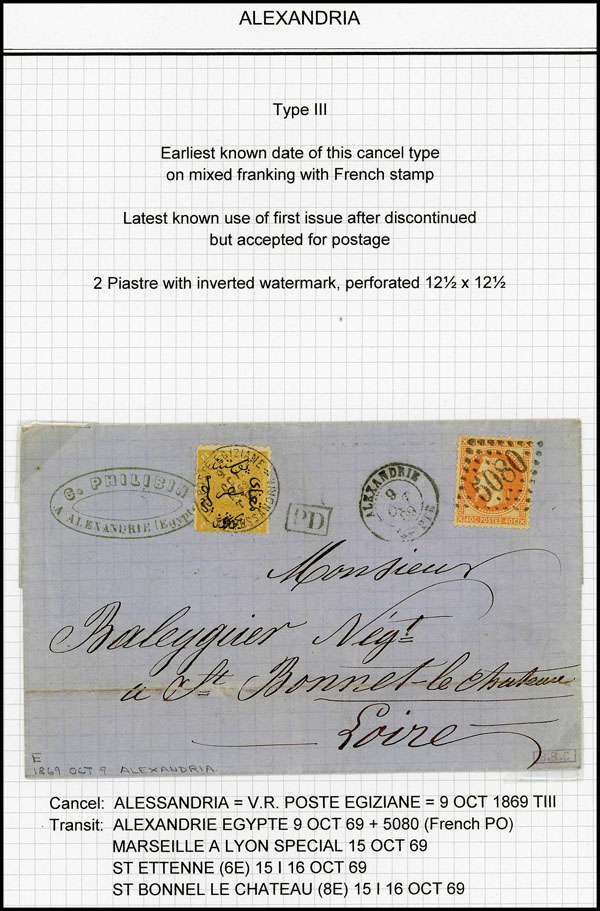 ALEXANDRIA
Type III
Earliest known date of this cancel type
on mixed franking with French stamp
Latest known use of first issue after discontinued
but accepted for postage
2 Piastre with inverted watermark, perforated 12½ x 12½
C. PHILIBIN
A ALEXANDRIE (Egypte)
POSTE EGIZIANE
PD
ALEXANDRIE
9
OCT
69
5080
40C POSTES 40C
Monsieur
Baleyguier Négt
à St Bonnet-le-Chateau
Loire
E
1869 OCT 9 ALEXANDRIA.
Cancel: ALESSANDRIA = V.R. POSTE EGIZIANE = 9 OCT 1869 TIII
Transit: ALEXANDRIE EGYPTE 9 OCT 69 + 5080 (French PO)
MARSEILLE A LYON SPECIAL 15 OCT 69
ST ETTENNE (6E) 15 I 16 OCT 69
ST BONNEL LE CHATEAU (8E) 15 I 16 OCT 69